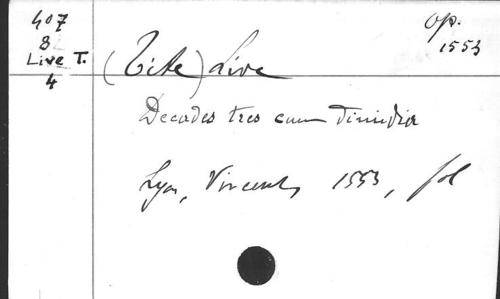 407
8
Live T.
4
Op.
1553
(Tite) Live
Decades tres cum dimidia
Lyon, Vincent, 1553, fol